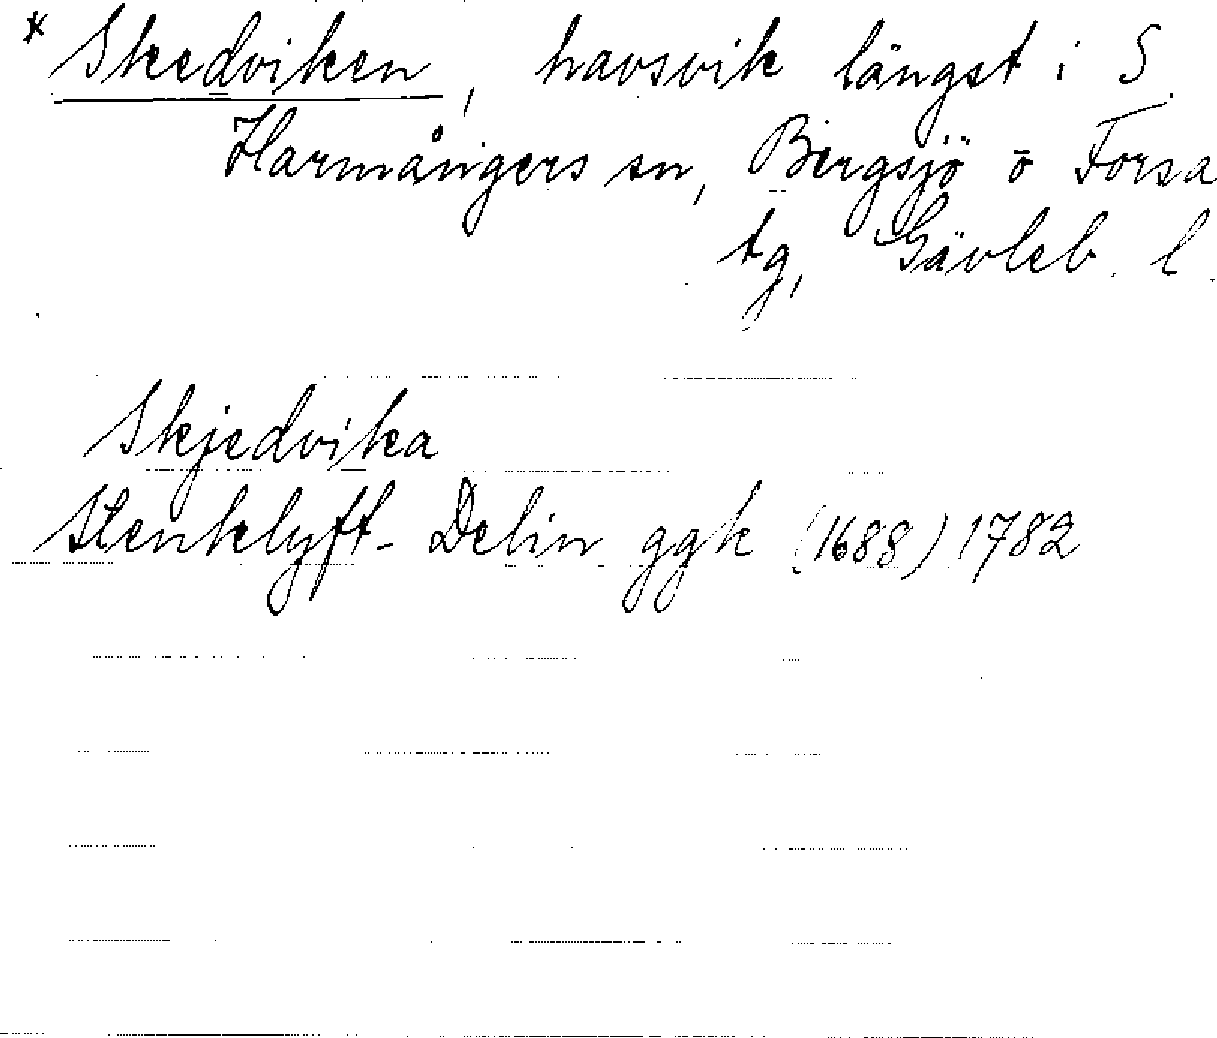 * Skedviken, havsvik längst i S.
Harmångers sn, Bergsjö o Forsa
tg, Gävleb. l.
Skjedvika
Stenklyft- Delin ggk (1688) 1782